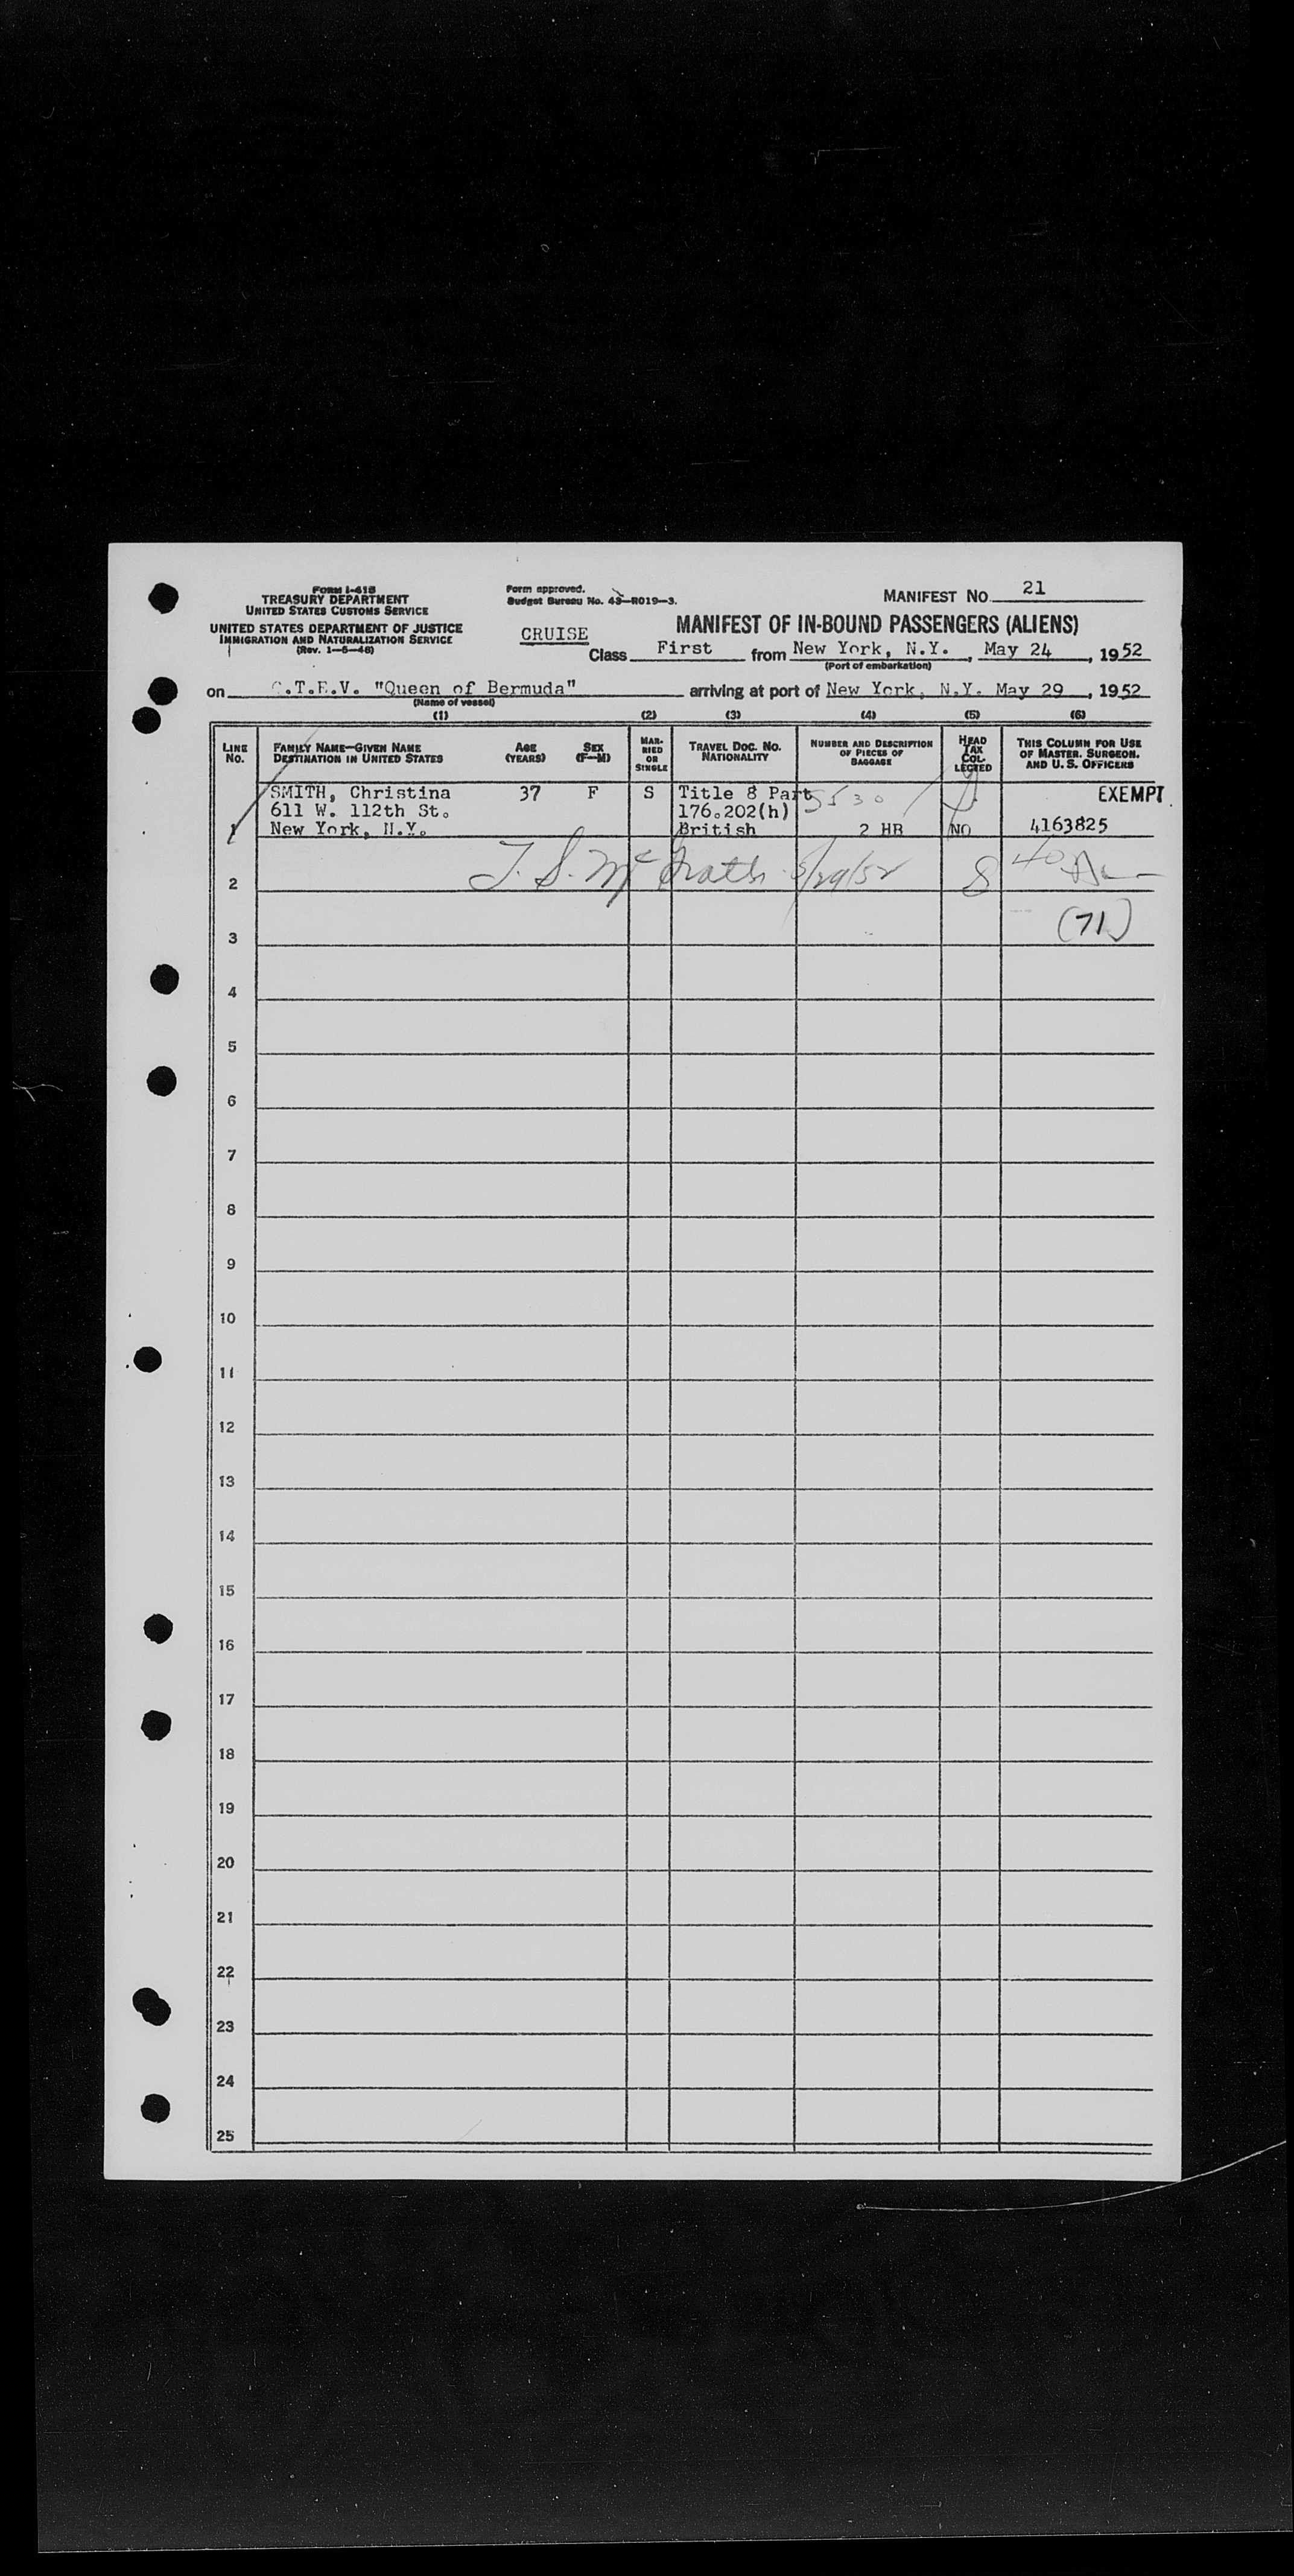 FORM I-415
TREASURY DEPARTMENT
UNITED STATES CUSTOMS SERVICE
UNITED STATES DEPARTMENT OF JUSTICE
IMMIGRATION AND NATURALIZATION SERVICE
(Rev. 1-5-46)
Form approved.
Budget Bureau No. 43-R019-3.
MANIFEST NO. 21
CRUISE
MANIFEST OF IN-BOUND PASSENGERS (ALIENS)
Class First from New York, N.Y., May 24, 1952
(Port of embarkation)
on "Queen of Bermuda" arriving at port of New York, N.Y. May 29, 1952
(Name of vessel)
(1) (2) (3) (4) (5) (6)
LINE NO.
FAMILY NAME—GIVEN NAME
DESTINATION IN UNITED STATES
AGE (YEARS)
SEX (F—M)
MARRIED OR SINGLE
TRAVEL DOC. NO.
NATIONALITY
NUMBER AND DESCRIPTION
OF PIECES OF
BAGGAGE
HEAD TAX COLLECTED
THIS COLUMN FOR USE
OF MASTER, SURGEON,
AND U. S. OFFICERS
SMITH, Christina 37 F S Title 8 Part 5530 EXEMPT
611 W. 112th St. 176.202(h)
1 New York, N.Y. British 2 HB NO 4163825
T. S. McGrath 5/29/52 8
2
(71)
3
4
5
6
7
8
9
10
11
12
13
14
15
16
17
18
19
20
21
22
23
24
25